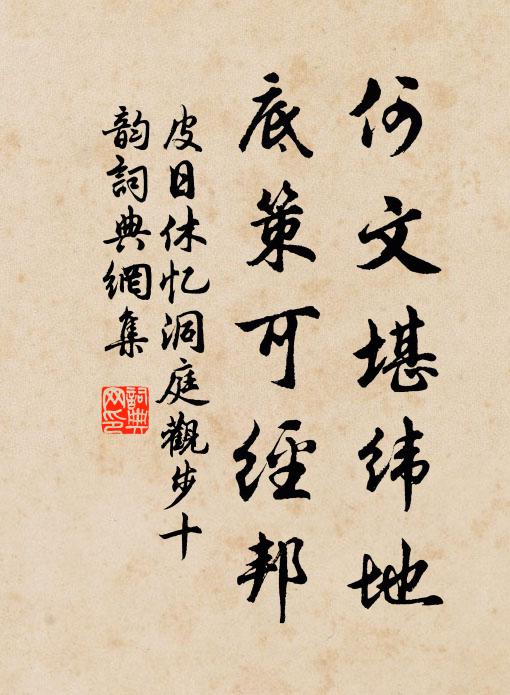 何文堪纬地
底策可經邦
皮日休忆洞庭觀步十
韵詞典網集
詞典
网印